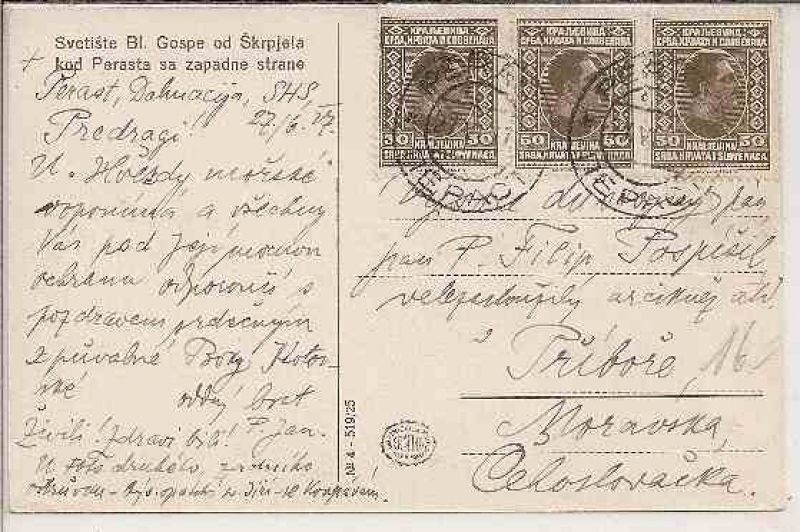 Svetište Bl. Gospe od Škrpjela
kod Perasta sa zapadne strane
Perast, Dalmacija, SHS,
27/6. 27.
Predragí!
U „Hvězdy mořské“
vzpomíná a všechny
Vás pod Její mocnou
ochranu odporouč s
pozdravem srdečným
z půvabné Boky Kotor-
ské oddaný brat
P. Jan.
Živili! Zdravi bili!
U této druhého
КРАЉЕВИНА
СРБА, ХРВАТА И СЛОВЕНАЦА
50 50
KRALJEVINA
SRBA, HRVATA I SLOVENACA
КРАЉЕВИНА
СРБА, ХРВАТА И СЛОВЕНАЦА
50 50
KRALJEVINA
SRBA, HRVATA I SLOVENACA
КРАЉЕВИНА
СРБА, ХРВАТА И СЛОВЕНАЦА
50 50
KRALJEVINA
SRBA, HRVATA I SLOVENACA
ПЕРАСТ
PERAST
pan
pan P. Filip Pospíšil
velezasloužilý arcikněz atd
v
Příboře,
Moravská,
Čehoslovačka.
№ 4 - 519/25